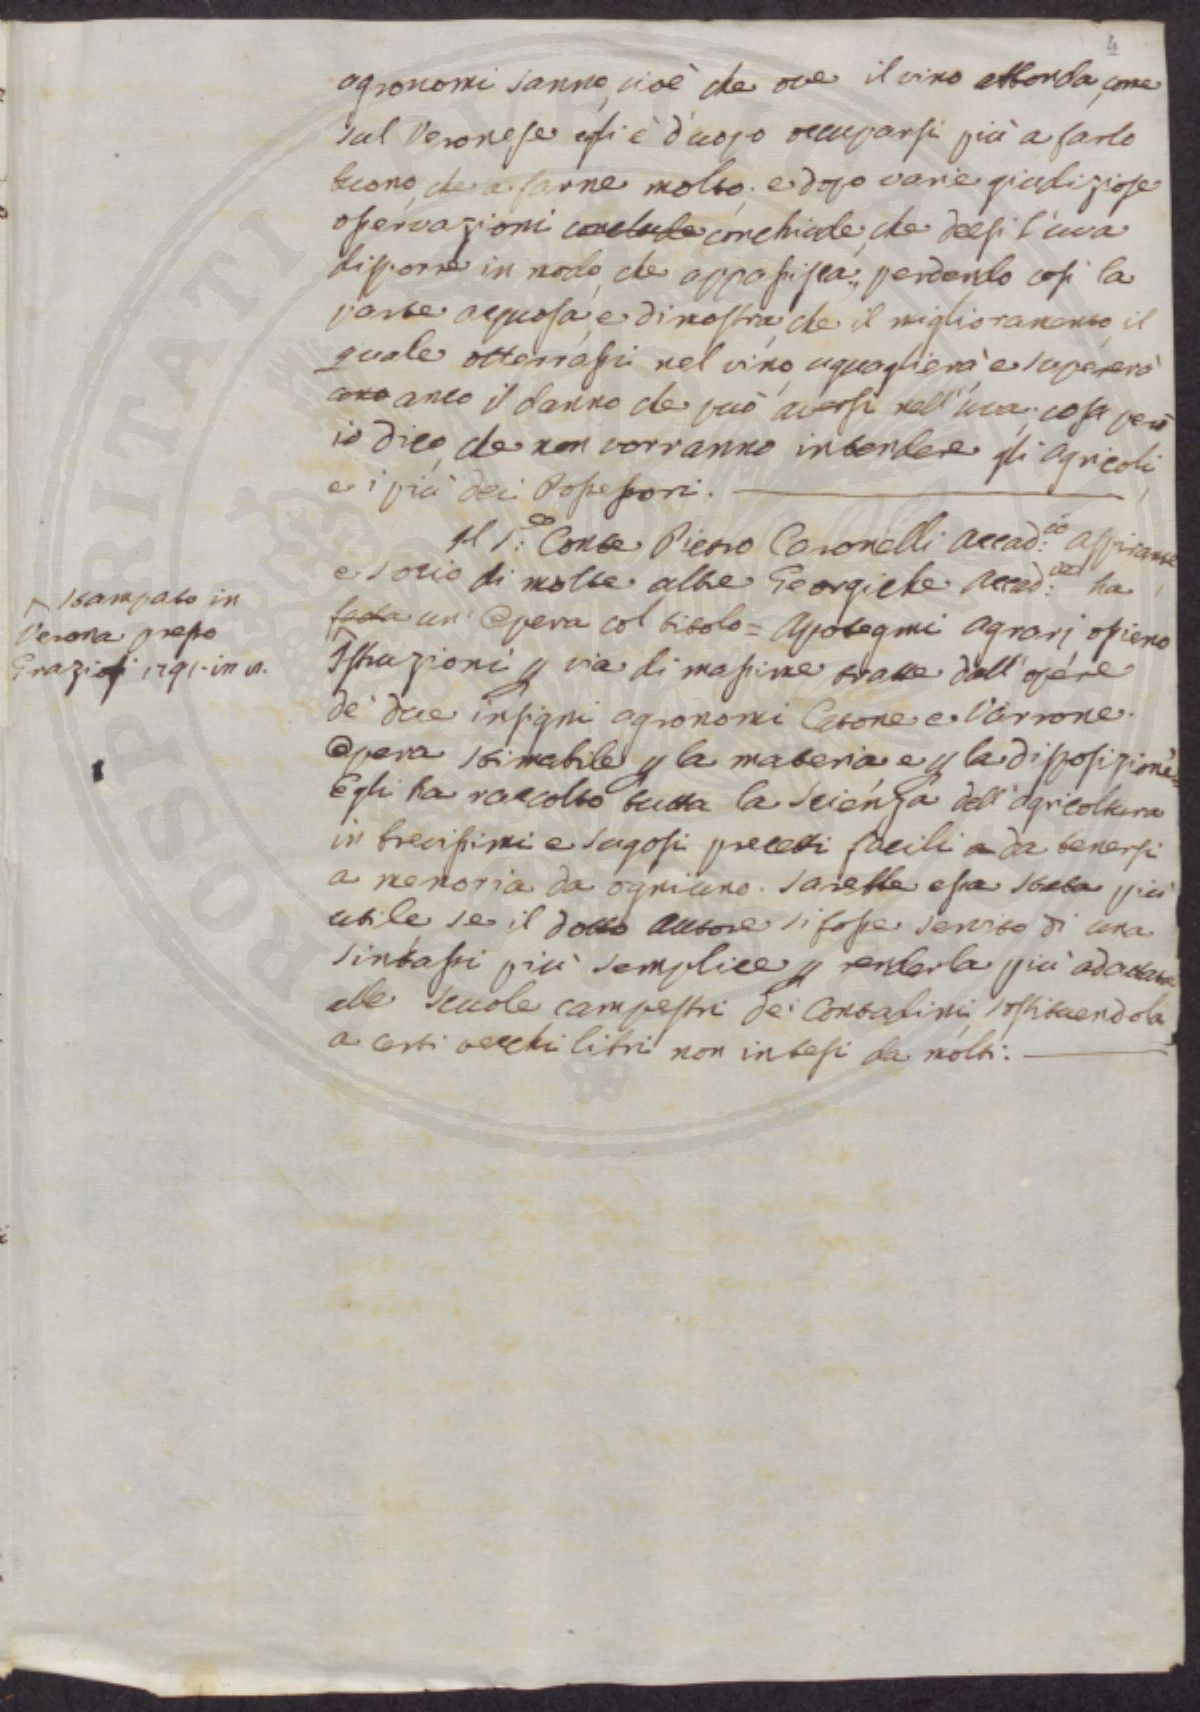 4
agronomi sanno, cioè che ove il vino abbonda, come
sul Veronese egli è d'uopo occuparsi più a farlo
buono, che a farne molto; e dopo varie giudiziose
osservazioni conclude conchiude, che deesi l'uva
disporre in modo, che appassisca, perdendo così la
parte acquosa, e dimostra, che il miglioramento, il
quale otterrassi nel vino, uguaglierà, e supererà
anco il danno che può aversi nell'uva; cosa però
io dico, che non vorranno intendere gli Agricoli,
e i più dei Possessori.
Il S.r Conte Pietro Caronelli Accad:co aspirante
e socio di molte altre Georgiche Accad:e ha
fatta un' Opera col titolo = Apotegmi agrarj ossieno
Istruzioni p via di massime tratte dall'opere
de' due insigni agronomi Catone e Varrone.
Opera stimabile p la materia e p la disposizione.
Egli ha raccolto tutta la scienza dell'agricoltura
in brevissimi e sugosi precetti facili a da tenersi
a memoria da ogniuno. Sarebbe essa stata più
utile se il dotto Autore si fosse servito di una
sintassi più semplice p renderla più adattata
alle scuole campestri dei Contadini, sostituendola
a certi vecchi libri non intesi da molti.
Stampato in
Verona presso
1791. in 8.